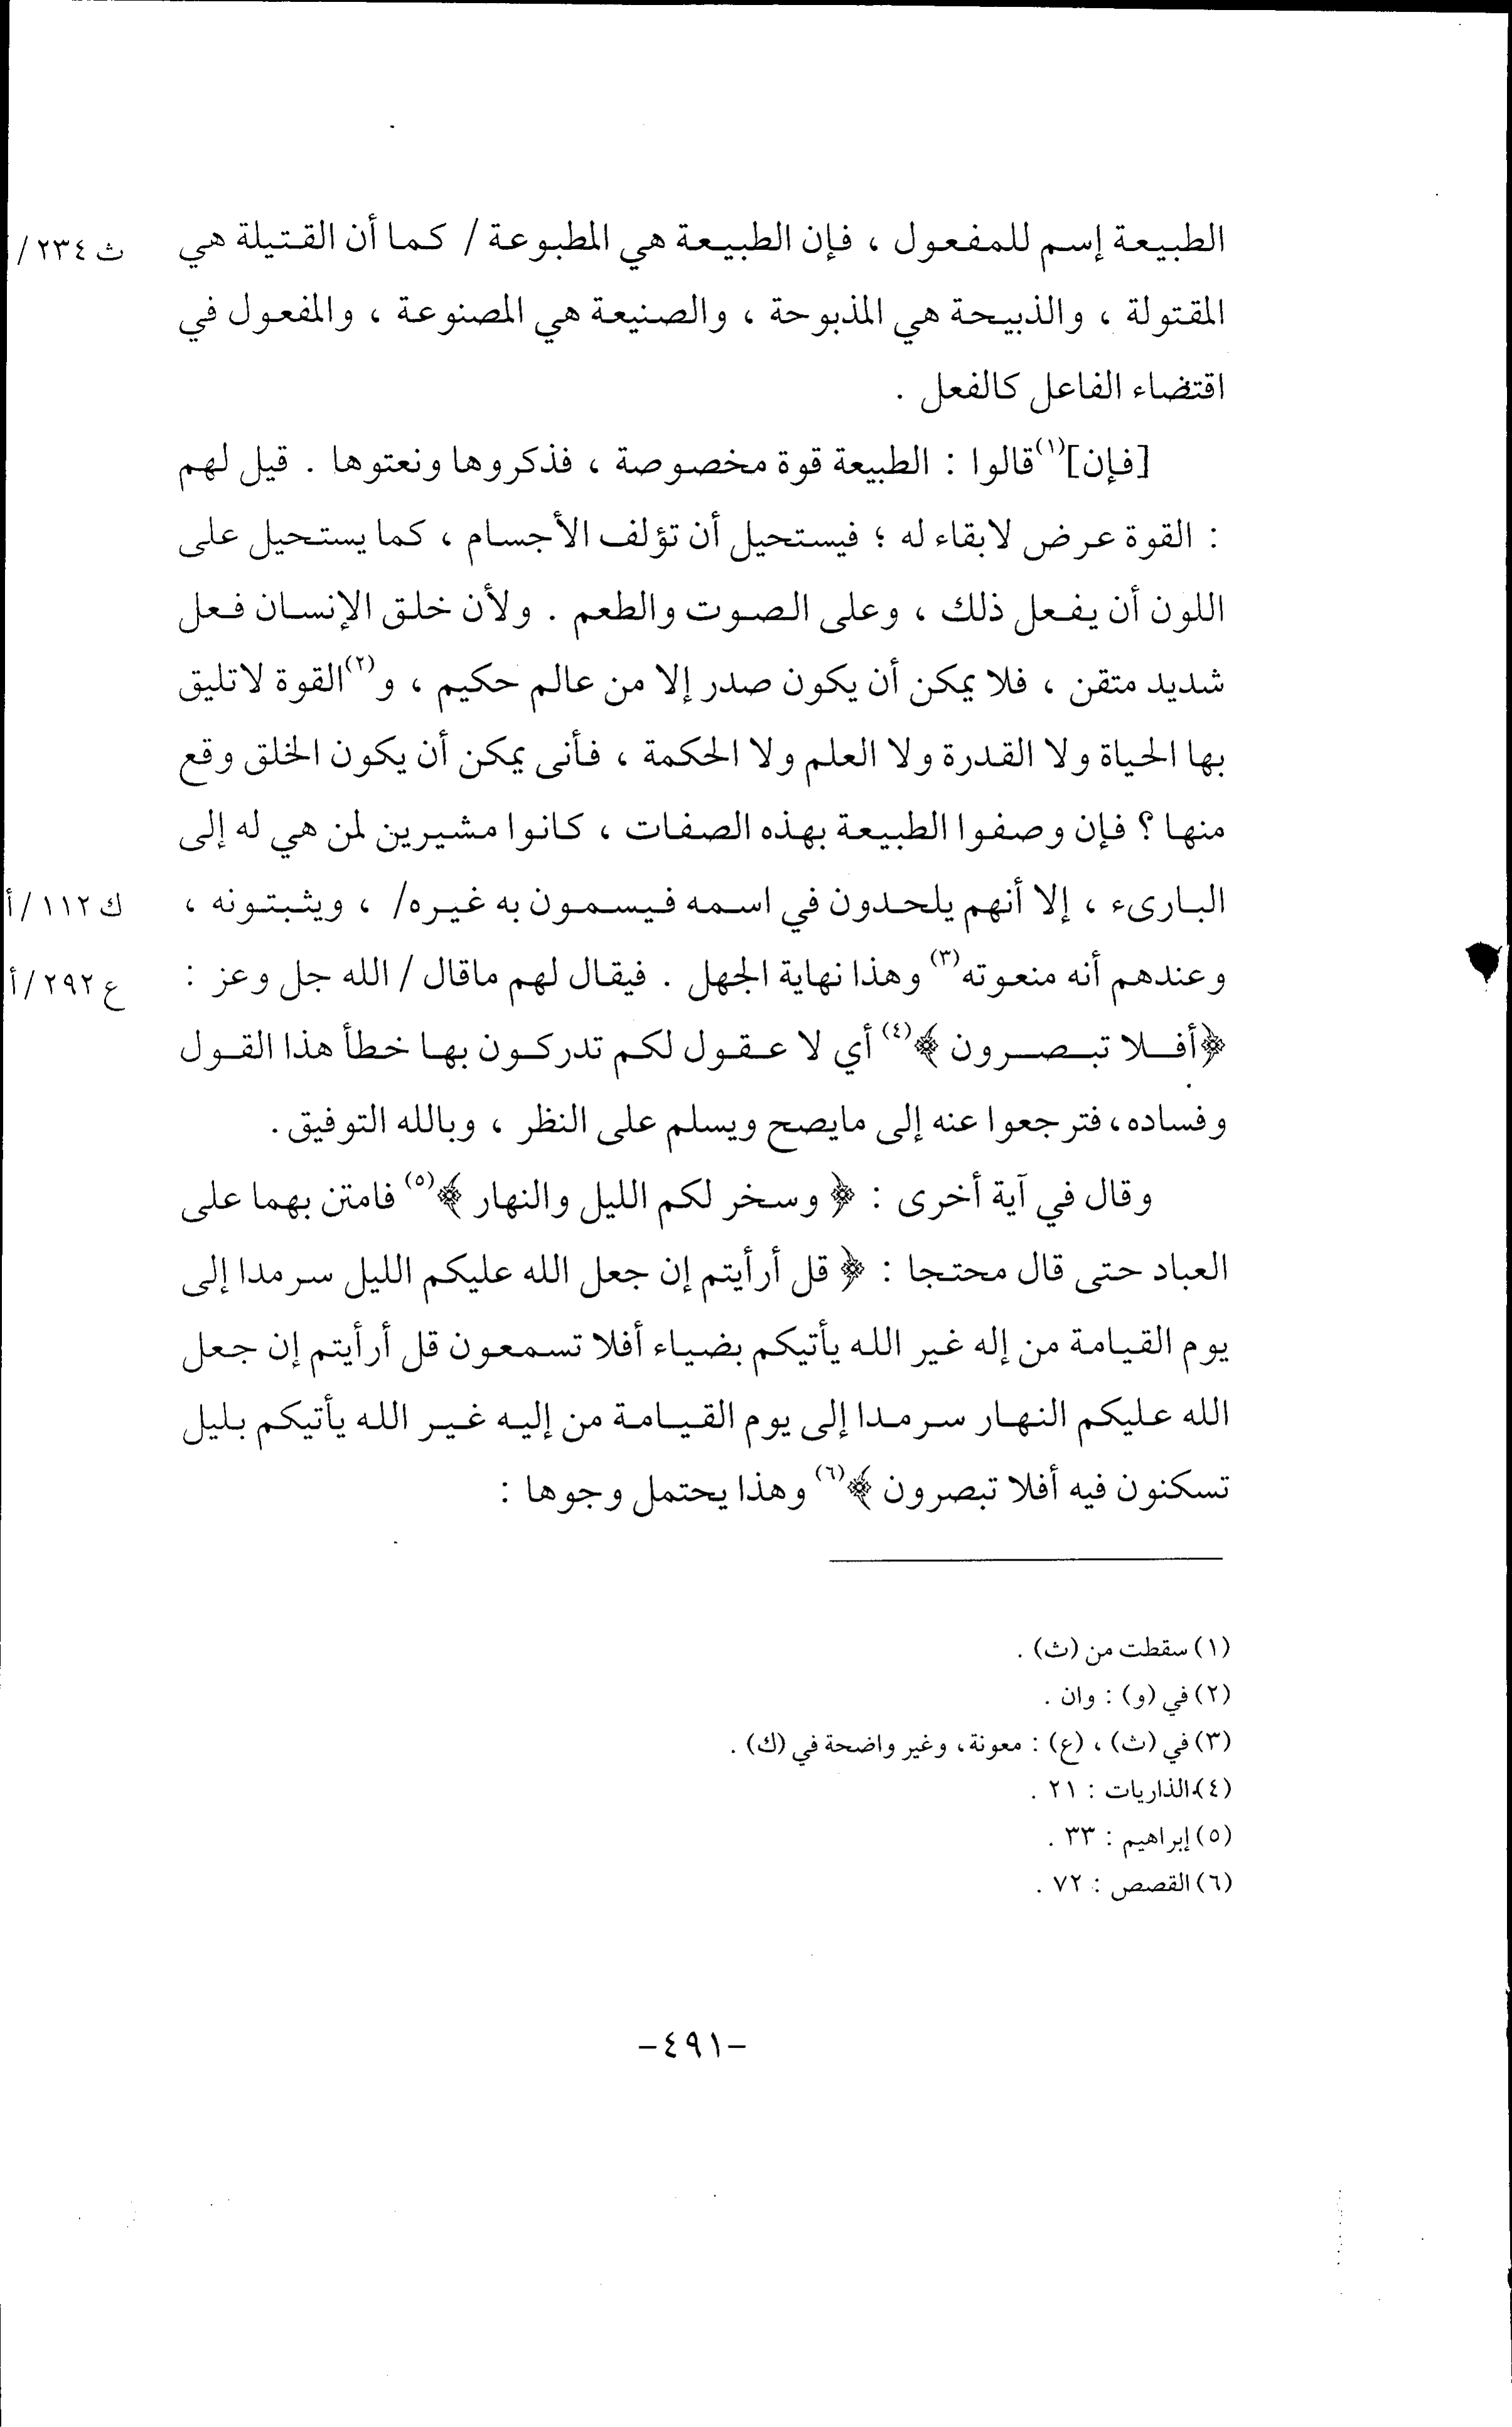 الطبيعة إسم للمفعول ، فإن الطبيعة هي المطبوعة / كما أن القتيلة هي ث ٢٣٤ /
المقتولة ، والذبيحة هي المذبوحة ، والصنيعة هي المصنوعة ، والمفعول في
اقتضاء الفاعل كالفعل .
[فإن](١) قالوا : الطبيعة قوة مخصوصة ، فذكروها ونعتوها . قيل لهم
: القوة عرض لابقاء له ؛ فيستحيل أن تؤلف الأجسام ، كما يستحيل على
اللون أن يفعل ذلك ، وعلى الصوت والطعم . ولأن خلق الإنسان فعل
شديد متقن ، فلا يمكن أن يكون صدر إلا من عالم حكيم ، و(٢) القوة لاتليق
بها الحياة ولا القدرة ولا العلم ولا الحكمة ، فأنى يمكن أن يكون الخلق وقع
منها ؟ فإن وصفوا الطبيعة بهذه الصفات ، كانوا مشيرين لمن هي له إلى
البارىء ، إلا أنهم يلحدون في اسمه فيسمون به غيره/ ، ويثبتونه ، ك ١١٢ /أ
وعندهم أنه منعوته(٣) وهذا نهاية الجهل . فيقال لهم ماقال / الله جل وعز : ع ٢٩٢ /أ
﴿أفلا تبصرون ﴾(٤) أي لا عقول لكم تدركون بها خطأ هذا القول
وفساده، فترجعوا عنه إلى مايصح ويسلم على النظر ، وبالله التوفيق .
وقال في آية أخرى : ﴿ وسخر لكم الليل والنهار ﴾(٥) فامتن بهما على
العباد حتى قال محتجا : ﴿ قل أرأيتم إن جعل الله عليكم الليل سرمدا إلى
يوم القيامة من إله غير الله يأتيكم بضياء أفلا تسمعون قل أرأيتم إن جعل
الله عليكم النهار سرمدا إلى يوم القيامة من إليه غير الله يأتيكم بليل
تسكنون فيه أفلا تبصرون ﴾(٦) وهذا يحتمل وجوها :
(١) سقطت من (ث) .
(٢) في (و) : وان .
(٣) في (ث) ، (ع) : معونة، وغير واضحة في (ك) .
(٤) الذاريات : ٢١ .
(٥) إبراهيم : ٣٣ .
(٦) القصص : ٧٢ .
-٤٩١-